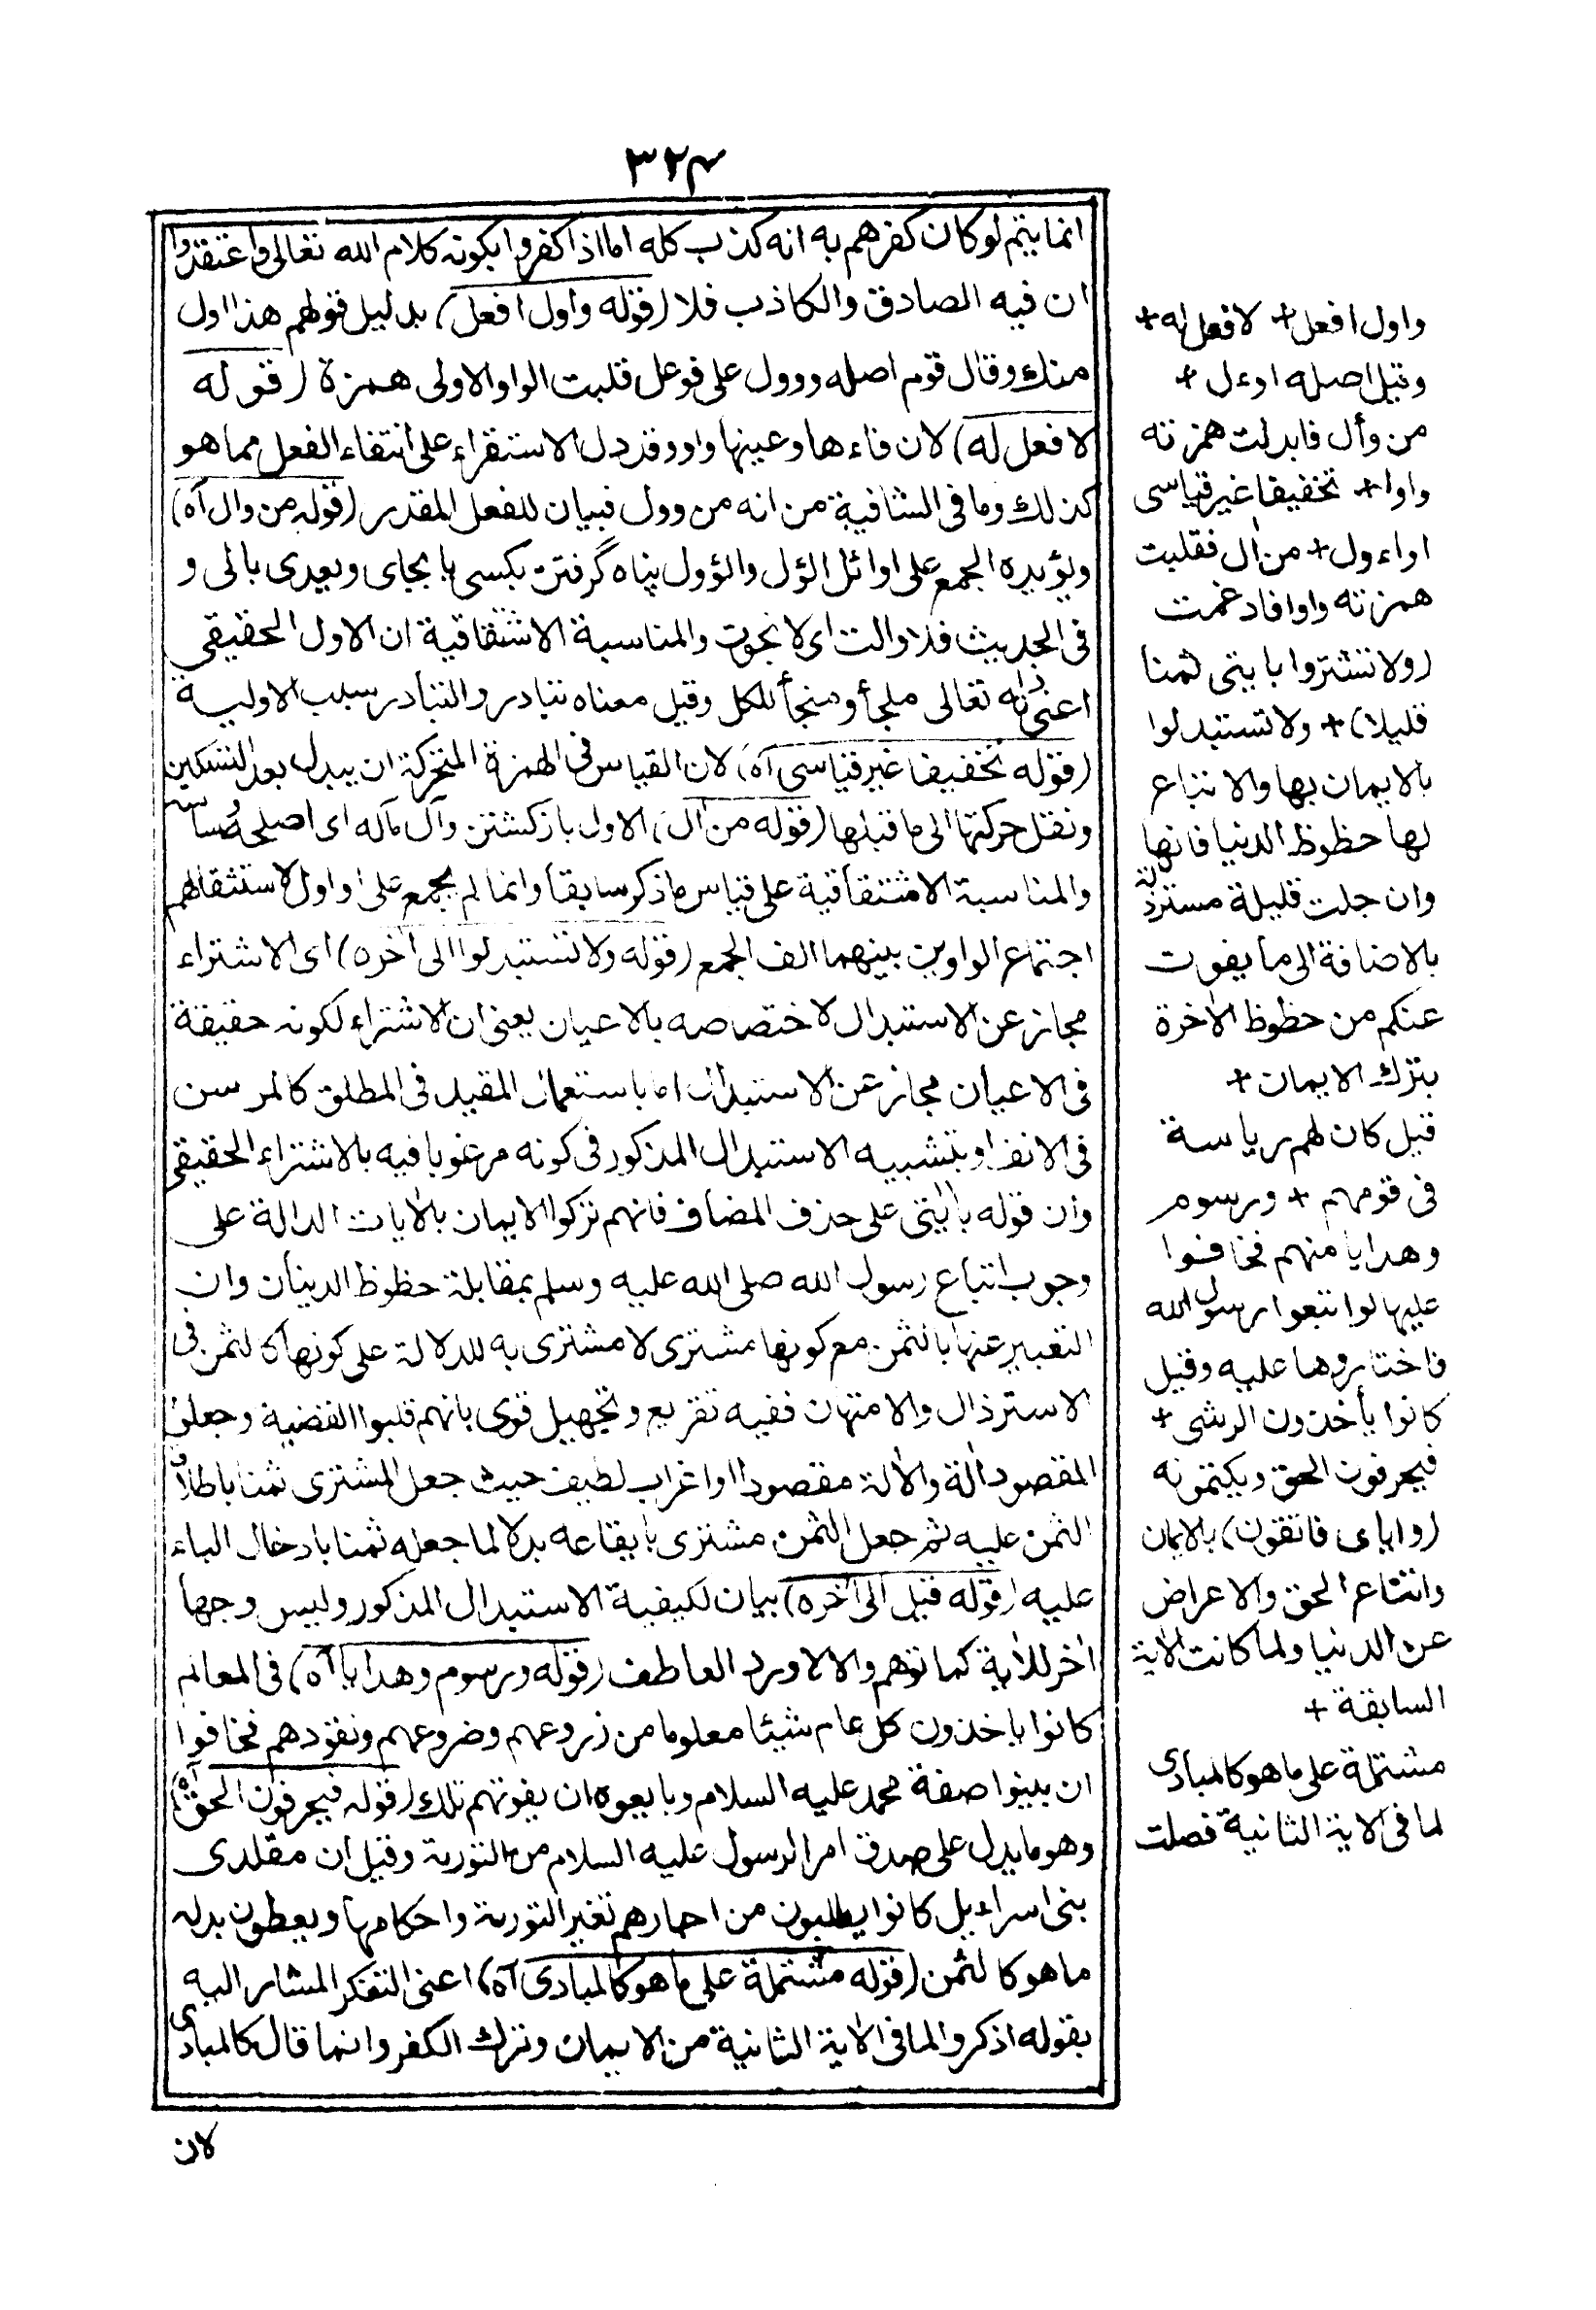 ٣٢٤
انما يتم لو كان كفرهم به انه كذب كله اما اذا كفروا بكونه كلام الله تعالى واعتقدوا
ان فيه الصادق والكاذب فلا (قوله واول افعل) بدليل قولهم هذا اول
منك وقال قوم اصله وووْل على فوعل قلبت الواو الاولى همزة (قوله
لا فعل له) لان فاءها وعينها واو وقد دل الاستقراء على انتفاء الفعل مما هو
كذلك وما فى الشافية من انه من وول فبيان للفعل المقدر (قوله من وال آه)
ويؤيده الجمع على اوائل الؤل والؤول پناه گرفتن بكسى يا بجاى ويعدى بالى و
فى الحديث فلا والت اى لا نجوت والمناسبة الاشتقاقية ان الاول الحقيقى
اعنى ذاته تعالى ملجأ ومنجأ للكل وقيل معناه تبادر والتبادر سبب الاولية
(قوله تخفيفا غير قياسى آه) لان القياس فى الهمزة المتحركة ان يبدل بعد التسكين
ونقل حركتها الى ما قبلها (قوله من اٰل) الاول بازگشتن وآل ماله اى اصلحه وساسه
والمناسبة الاشتقاقية على قياس ما ذكر سابقا وانما لم يجمع على اواول لاستثقالهم
اجتماع الواوين بينهما الف الجمع (قوله ولا تستبدلوا الى اٰخره) اى الاشتراء
مجاز عن الاستبدال لاختصاصه بالاعيان يعنى ان الاشتراء لكونه حقيقة
فى الاعيان مجاز عن الاستبدال اما باستعمال المقيد فى المطلق كالمرسن
فى الانف او بتشبيه الاستبدال المذكور فى كونه مرغوبا فيه بالاشتراء الحقيقى
وان قوله باٰيٰتى على حذف المضاف فانهم تركوا الايمان بالاٰيات الدالة على
وجوب اتباع رسول الله صلى الله عليه وسلم بمقابلة حظوظ الدنيا وان
التعبير عنها بالثمن مع كونها مشترى لا مشترى به للدلالة على كونها كالثمن فى
الاسترذال والامتهان ففيه تقريع وتجهيل قوى بانهم قلبوا القضية وجعلوا
المقصود اٰلة والاٰلة مقصودا واغراب لطيف حيث جعل المشترى ثمنا باطلاق
الثمن عليه ثم جعل الثمن مشترى بايقاعه بدلا لما جعله ثمنا بادخال الباء
عليه (قوله قيل الى اٰخره) بيان لكيفية الاستبدال المذكور وليس وجها
اٰخر للاٰية كما توهم والا لاورد العاطف (قوله ورسوم وهدايا آه) فى المعالم
كانوا ياخذون كل عام شيئا معلوما من زروعهم وضروعهم ونقودهم فخافوا
ان بينوا صفة محمد عليه السلام وبايعوه ان يفوتهم تلك (قوله فيحرفون الحق آه)
وهو ما يدل على صدق امر الرسول عليه السلام من التورية وقيل ان مقلدى
بنى اسراءيل كانوا يطلبون من احبارهم تغير التورية واحكامها ويعطون بدله
ما هو كالثمن (قوله مشتملة على ما هو كالمبادى آه) اعنى التفكر المشار اليه
بقوله اذكروا لما فى الاٰية الثانية من الايمان وترك الكفر وانما قال كالمبادى
لان
واول افعل + لا فعل له +
وقيل اصله اوءل +
من وأل فابدلت همزته
واوا + تخفيفا غير قياسى
او اءول + من اٰل فقلبت
همزته واوا فادغمت
(ولا تشتروا باٰيتى ثمنا
قليلا) + ولا تستبدلوا
بالايمان بها والاتباع
لها حظوظ الدنيا فانها
وان جلت قليلة مسترذلة
بالاضافة الى ما يفوت
عنكم من حظوظ الاٰخرة
بترك الايمان +
قيل كان لهم رياسة
فى قومهم + ورسوم
وهدايا منهم فخافوا
عليها لو اتبعوا رسول الله
فاختاروها عليه وقيل
كانوا يأخذون الرشى +
فيحرفون الحق ويكتمونه
(واياى فاتقون) بالايمان
واتباع الحق والاعراض
عن الدنيا ولما كانت الاٰية
السابقة +
مشتملة على ما هو كالمبادى
لما فى الاية الثانية فصلت